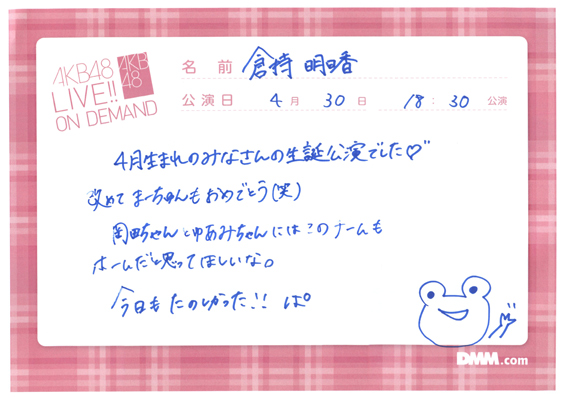 AKB48
LIVE!!
ON DEMAND
AKB
48
名前 倉持明日香
公演日 4月30日 18:30公演
4月生まれのみなさんの生誕公演でした♡
改めてまーちゅんもおめでとう(笑)
岡田ちゃんとゆあみちゃんにはこのチームも
ホームだと思ってほしいな。
今日もたのしかった!! ぱ。
DMM.com